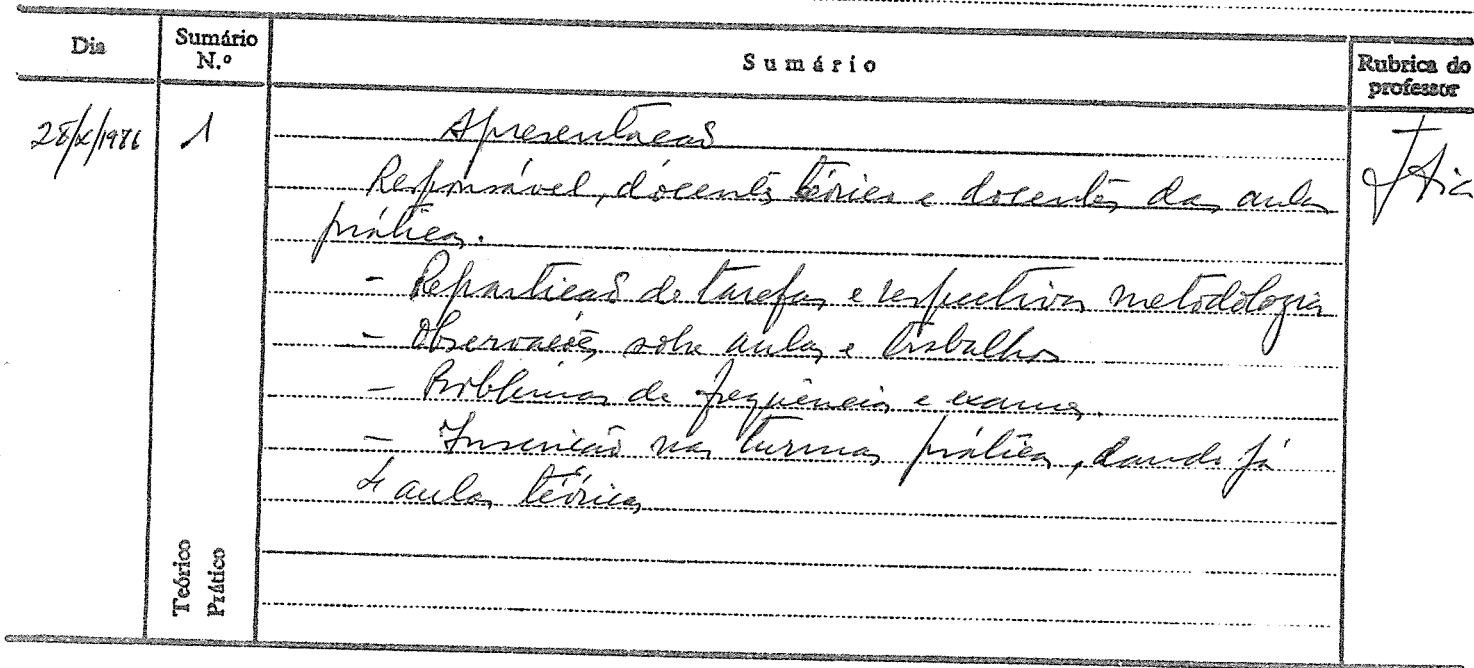 Dia
Sumário
N.º
Sumário
Rubrica do
professor
28/X/1986
1
Apresentação
Responsável, docente teórico e docentes das aulas
práticas.
- Repartição de tarefas e respectiva metodologia
- Observações sobre aulas e trabalhos
- Problemas de freqüência e exames.
- Inscrição nas turmas práticas, dando já
aulas teóricas
Teórico
Prático